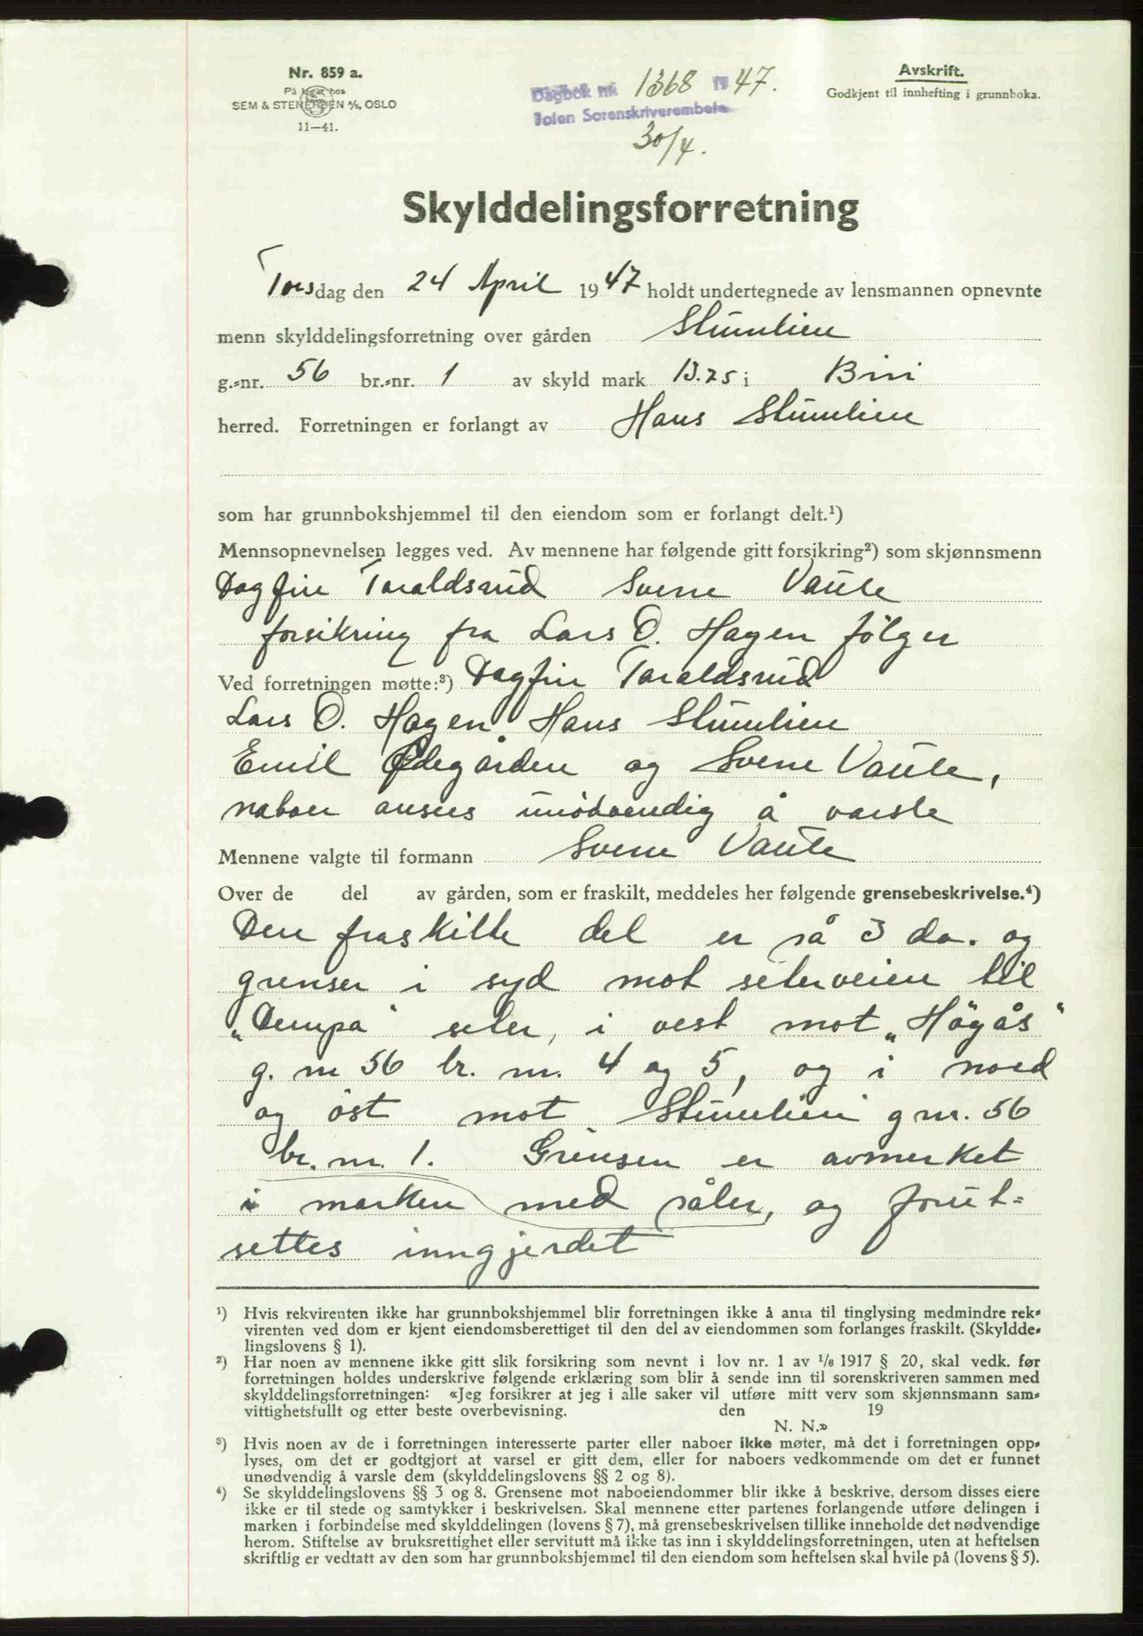 Nr. 859 a.
På lager hos
SEM & STENERSEN A/S, OSLO
11—41.
Dagbok nr. 1368 1947.
Toten Sorenskriverembete
30/4.
Avskrift.
Godkjent til innhefting i grunnboka.
Skylddelingsforretning
Torsdag den 24 April 1947 holdt undertegnede av lensmannen opnevnte
menn skylddelingsforretning over gården Stumlien
g.-nr. 56 br.-nr. 1 av skyld mark 13.75 i Biri
herred. Forretningen er forlangt av Hans Stumlien
som har grunnbokshjemmel til den eiendom som er forlangt delt.¹)
Mennsopnevnelsen legges ved. Av mennene har følgende gitt forsikring²) som skjønnsmenn
Dagfin Taraldsrud Sverre
forsikring fra Lars O. Hagen følger
Ved forretningen møtte:³) Dagfin Taraldsrud
Lars O. Hagen. Hans Stumlien
Emil Ødegården og Sverre
naboer anses unödvendig å varsle
Mennene valgte til formann Sverre
Over de del av gården, som er fraskilt, meddeles her følgende grensebeskrivelse.⁴)
Den fraskilte del er på 3 da. og
grenser i syd mot seterveien til
„Dempa" seter, i vest mot „Högås"
g. nr 56 br. nr. 4 og 5, og i nord
og öst mot Stumlien g nr. 56
br. nr. 1. Grensen er avmerket
i marken med påler, og forut-
settes inngjerdet
¹) Hvis rekvirenten ikke har grunnbokshjemmel blir forretningen ikke å anta til tinglysing medmindre rek-
virenten ved dom er kjent eiendomsberettiget til den del av eiendommen som forlanges fraskilt. (Skyldde-
lingslovens § 1).
²) Har noen av mennene ikke gitt slik forsikring som nevnt i lov nr. 1 av 1/6 1917 § 20, skal vedk. før
forretningen holdes underskrive følgende erklæring som blir å sende inn til sorenskriveren sammen med
skylddelingsforretningen: «Jeg forsikrer at jeg i alle saker vil utføre mitt verv som skjønnsmann sam-
vittighetsfullt og etter beste overbevisning. den 19
N. N.»
³) Hvis noen av de i forretningen interesserte parter eller naboer ikke møter, må det i forretningen opp-
lyses, om det er godtgjort at varsel er gitt dem, eller for naboers vedkommende om det er funnet
unødvendig å varsle dem (skylddelingslovens §§ 2 og 8).
⁴) Se skylddelingslovens §§ 3 og 8. Grensene mot naboeiendommer blir ikke å beskrive, dersom disses eiere
ikke er til stede og samtykker i beskrivelsen. Skal mennene etter partenes forlangende utføre delingen i
marken i forbindelse med skylddelingen (lovens § 7), må grensebeskrivelsen tillike inneholde det nødvendige
herom. Stiftelse av bruksrettighet eller servitutt må ikke tas inn i skylddelingsforretningen, uten at heftelsen
skriftlig er vedtatt av den som har grunnbokshjemmel til den eiendom som heftelsen skal hvile på (lovens § 5).